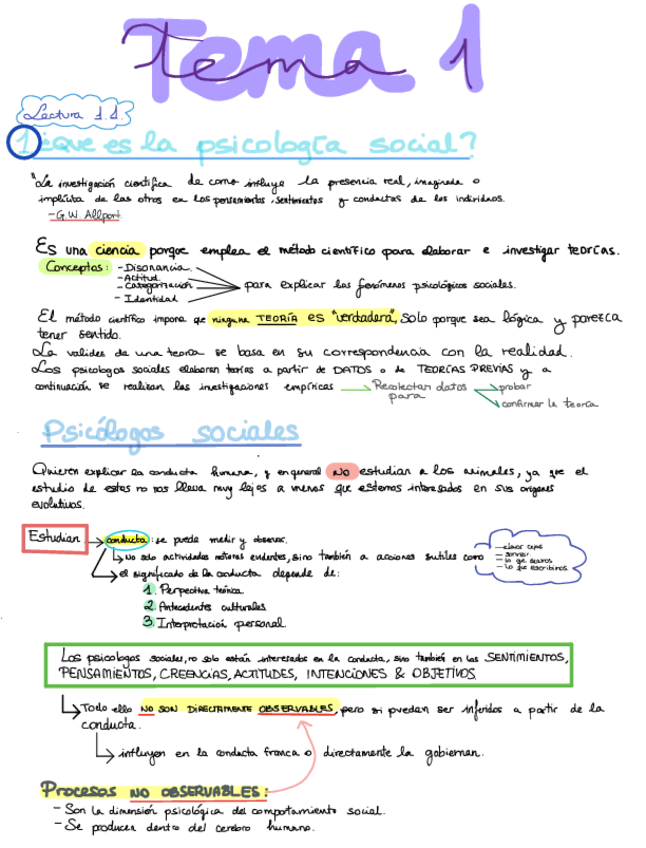 Tema 1
Lectura 1.1.
1 ¿que es la psicología social?
"La investigación científica de como influye la presencia real, imaginada o
implícita de los otros en los pensamientos, sentimientos y conductas de los individuos.
- G.W. Allport
Es una ciencia porque emplea el método científico para elaborar e investigar teorías.
Conceptos: - Disonancia
- Actitud
- Categorización
- Identidad
para explicar los fenómenos psicológicos sociales.
El método científico impone que ninguna TEORÍA es "verdadera", solo porque sea lógica y parezca
tener sentido.
La validez de una teoría se basa en su correspondencia con la realidad.
Los psicologos sociales elaboran teorías a partir de DATOS o de TEORÍAS PREVIAS y a
continuación se realizan las investigaciones empíricas
Recolectan datos
para
probar
confirmar la teoría
Psicólogos sociales
Quieren explicar la conducta humana, y en general NO estudian a los animales, ya que el
estudio de estos no nos lleva muy lejos a menos que estemos interesados en sus orígenes
evolutivos.
Estudian
conducta: se puede medir y observar.
No solo actividades motoras evidentes, sino también a acciones sutiles como
- elevar cejas
- sonreir
- lo que decimos
- lo que escribimos
el significado de la conducta depende de:
1. Perspectiva teórica
2. Antecedentes culturales
3. Interpretación personal
Los psicologos sociales, no solo están interesados en la conducta, sino también en los SENTIMIENTOS,
PENSAMIENTOS, CREENCIAS, ACTITUDES, INTENCIONES & OBJETIVOS.
Todo ello NO SON DIRECTAMENTE OBSERVABLES, pero si pueden ser inferidos a partir de la
conducta.
influyen en la conducta franca o directamente la gobiernan.
Procesos NO OBSERVABLES:
- Son la dimensión psicológica del comportamiento social.
- Se producen dentro del cerebro humano.